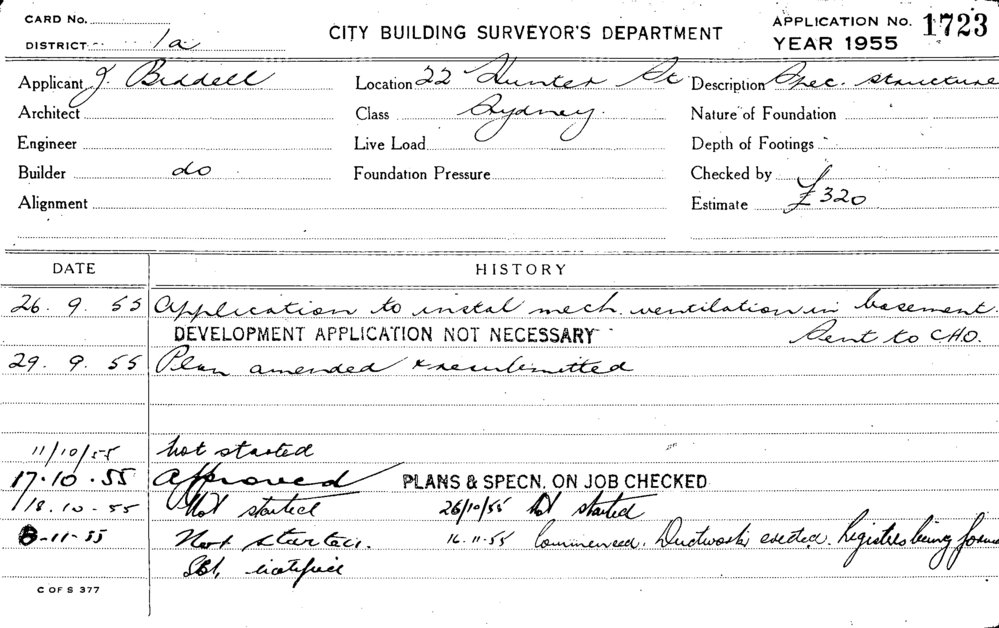 CARD No.
DISTRICT 1a
CITY BUILDING SURVEYOR'S DEPARTMENT
APPLICATION No. 1723
YEAR 1955
Applicant J. Biddell
Location 22 Hunter St
Description Spec. structure
Architect
Class Sydney.
Nature of Foundation
Engineer
Live Load
Depth of Footings
Builder do
Foundation Pressure
Checked by
Alignment
Estimate £320
DATE HISTORY
26. 9. 55 Application to instal mech. ventilation in basement.
DEVELOPMENT APPLICATION NOT NECESSARY Sent to CHO.
29. 9. 55 Plan amended & resubmitted
11/10/55 not started
17.10.55 Approved PLANS & SPECN. ON JOB CHECKED
18.10.55 Not started 26/10/55 Not started
8-11-55 Not started. 16.11.55 Commenced. Ductwork erected. Registers being
notified
C OF S 377